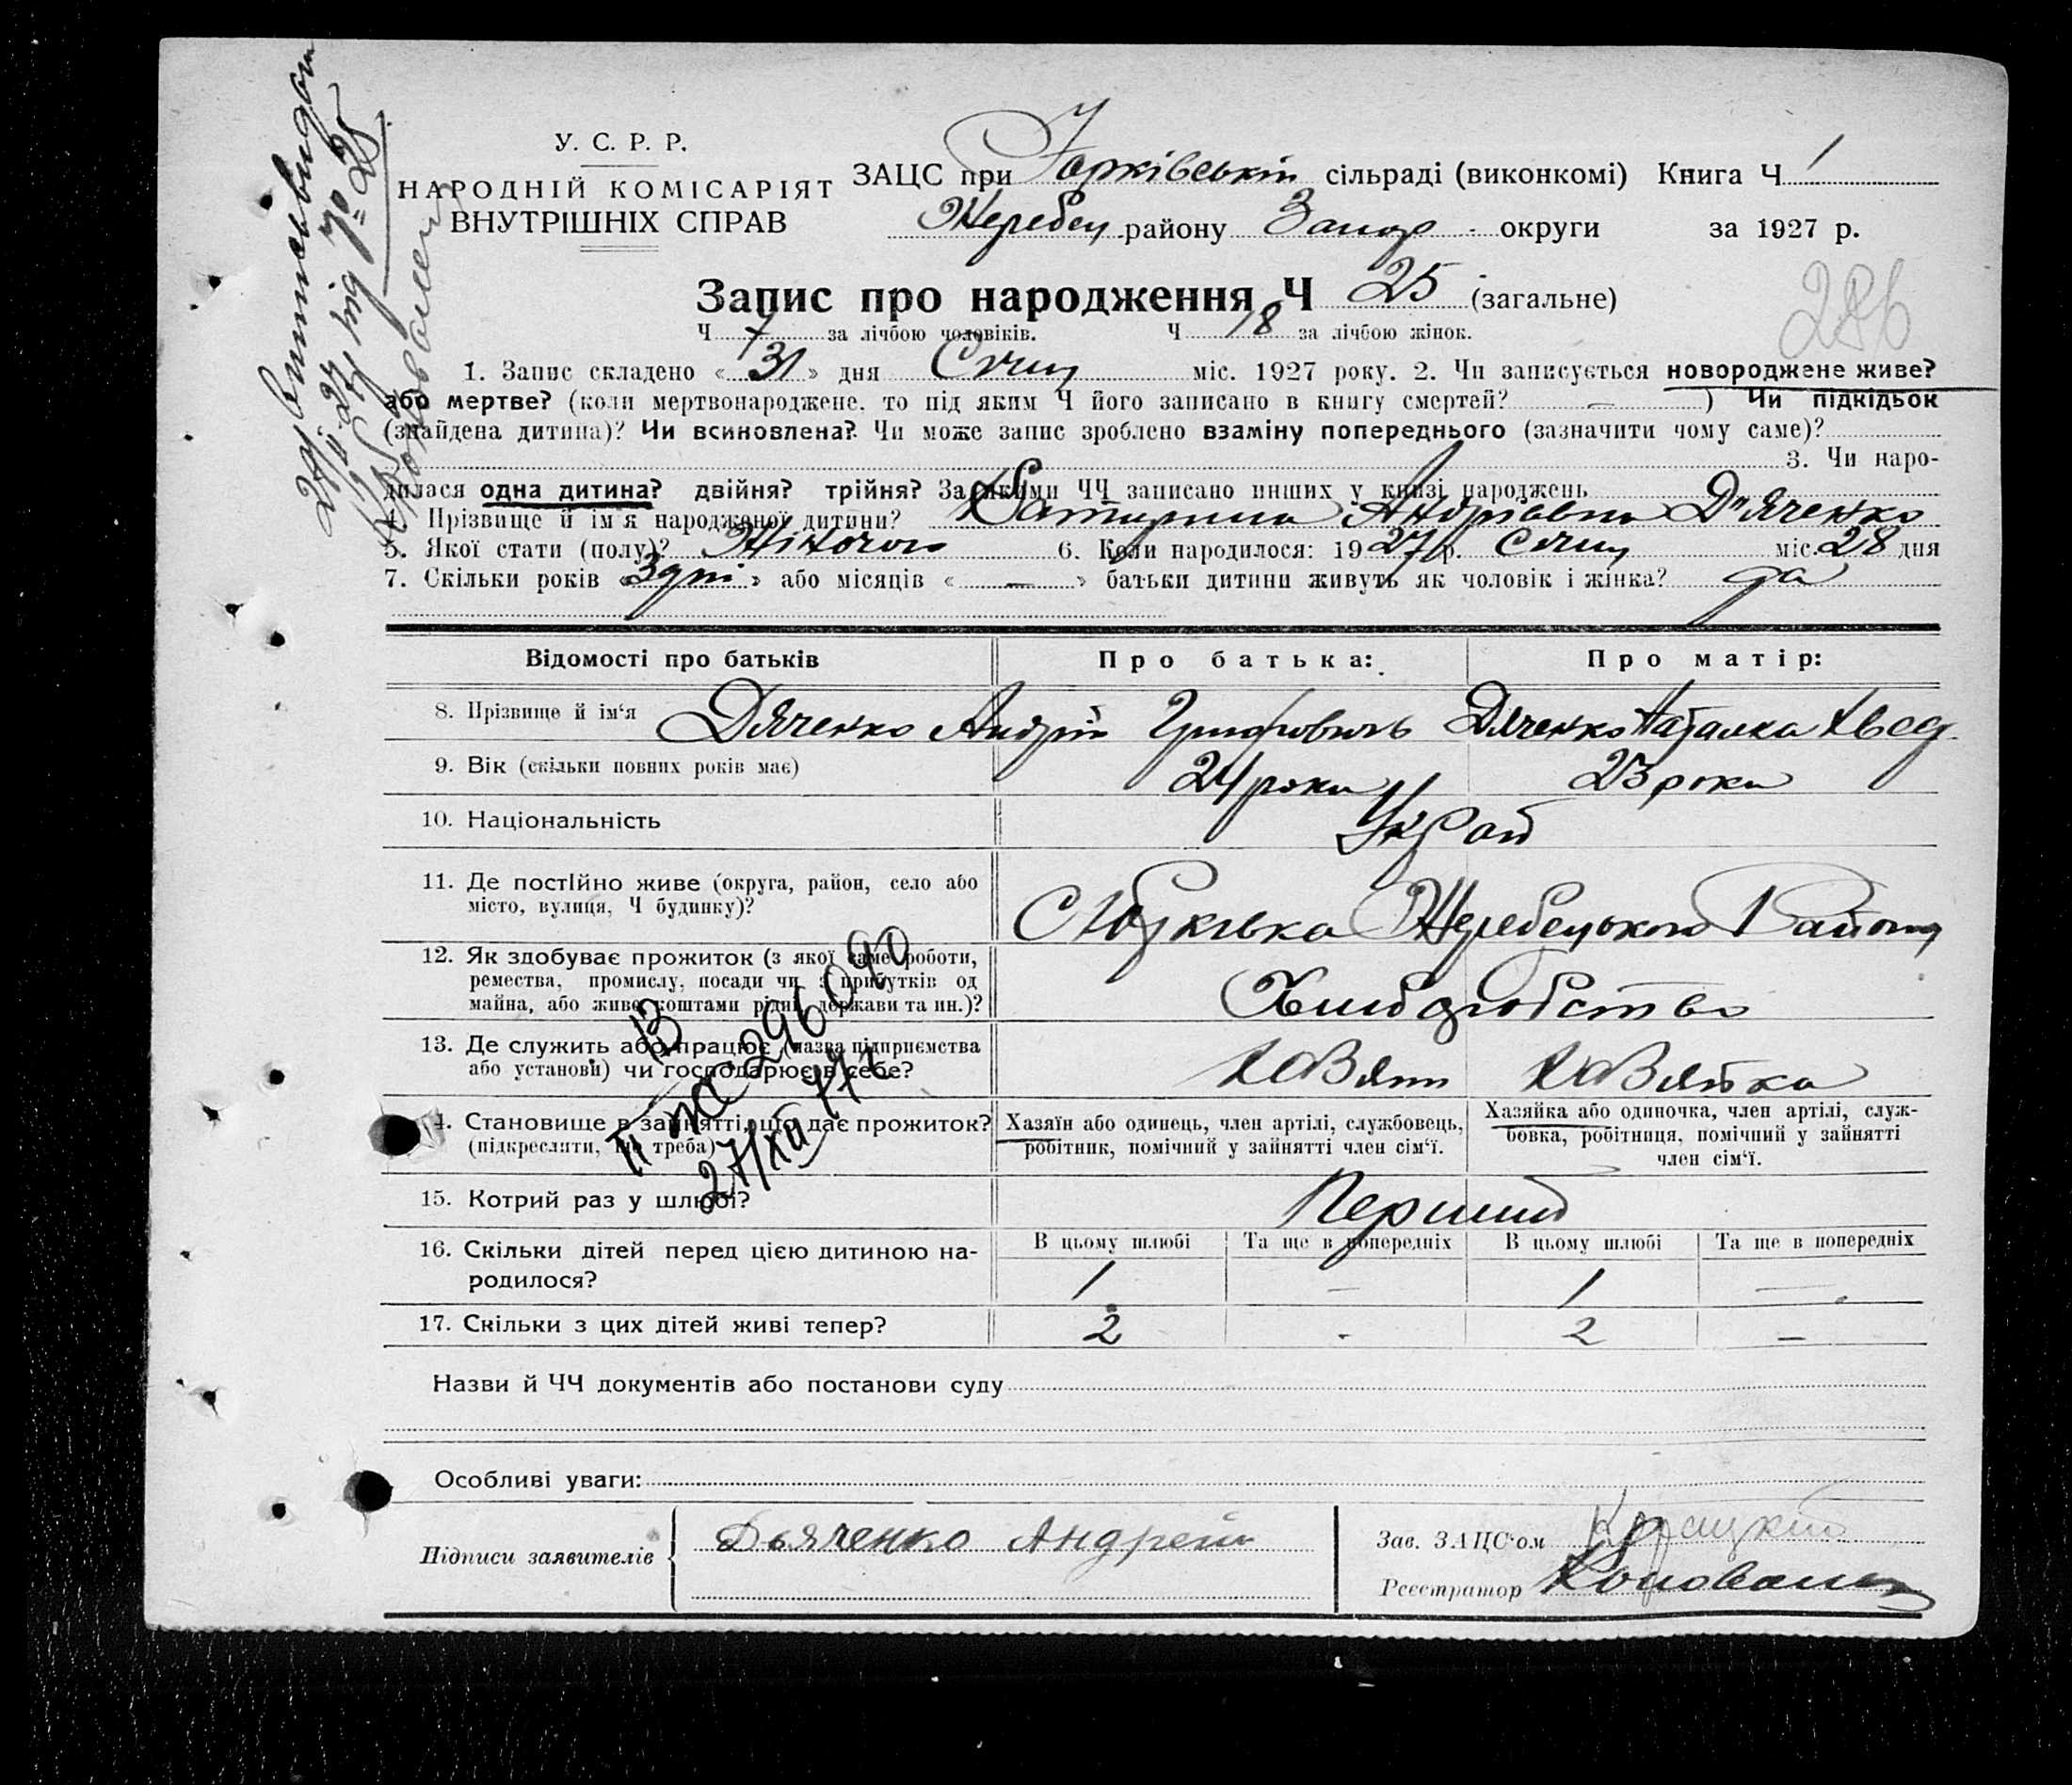 У. С. Р. Р.
НАРОДНІЙ КОМІСАРІЯТ
ВНУТРІШНІХ СПРАВ
ЗАЦС при Юрківській сільраді (виконкомі) Книга Ч 1
Жеребец району Запор округи за 1927 р.
Запис про народження Ч 25 (загальне)
286
Ч 7 за лічбою чоловіків. Ч 18 за лічбою жінок.
1. Запис складено «31» дня Січня міс. 1927 року. 2. Чи записується новороджене живе?
або мертве? (коли мертвонароджене, то під яким Ч його записано в книгу смертей? — ) Чи підкідьок
(знайдена дитина)? Чи всиновлена? Чи може запис зроблено взаміну попереднього (зазначити чому саме)?
3. Чи наро-
дилася одна дитина? двійня? трійня? За якими ЧЧ записано инших у книзі народжень
4. Прізвище й ім'я народженої дитини? Катерина Андріівна Д'Яченко
5. Якої стати (полу)? Жіночого 6. Коли народилося: 1927 р. Січня міс. 28 дня
7. Скільки років «3 дні» або місяців « — » батьки дитини живуть як чоловік і жінка? да
Відомості про батьків Про батька: Про матір:
8. Прізвище й ім'я Дяченко Андрій Дяченко Наталка Хвед.
9. Вік (скільки повних років має) 24 роки 23 роки
10. Національність
11. Де постІйно живе (округа, район, село або
місто, вулиця, Ч будинку)?
С Юрківка Жеребецького Району
12. Як здобуває прожиток (з якої саме роботи,
ремества, промислу, посади чи з прибутків од
майна, або живе коштами рідні, держави та ин.)?
Хліборобство
13. Де служить або працює (назва підприємства
або установи) чи господарює в себе?
14. Становище в зайнятті, що дає прожиток?
(підкреслити, що треба)
Хазяїн або одинець, член артілі, службовець,
робітник, помічний у зайнятті член сім'ї.
Хазяйка або одиночка, член артілі, служ-
бовка, робітниця, помічний у зайнятті
член сім'ї.
15. Котрий раз у шлюбі? Перший
16. Скільки дітей перед цією дитиною на-
родилося?
В цьому шлюбі Та ще в попередніх В цьому шлюбі Та ще в попередніх
1 — 1 —
17. Скільки з цих дітей живі тепер? 2 - 2 —
Назви й ЧЧ документів або постанови суду
Особливі уваги:
Підписи заявителів Дьяченко Андрей
Зав. ЗАЦС'ом
Реєстратор Коновалец
27/XII 77 г